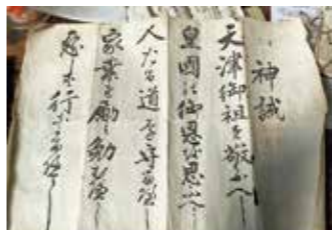 神誡
天津御祖を敬ふべし
皇國の御恩を思ふべし
人たる道を守るべし
家業を励み勤むべし
悪き行すべからず